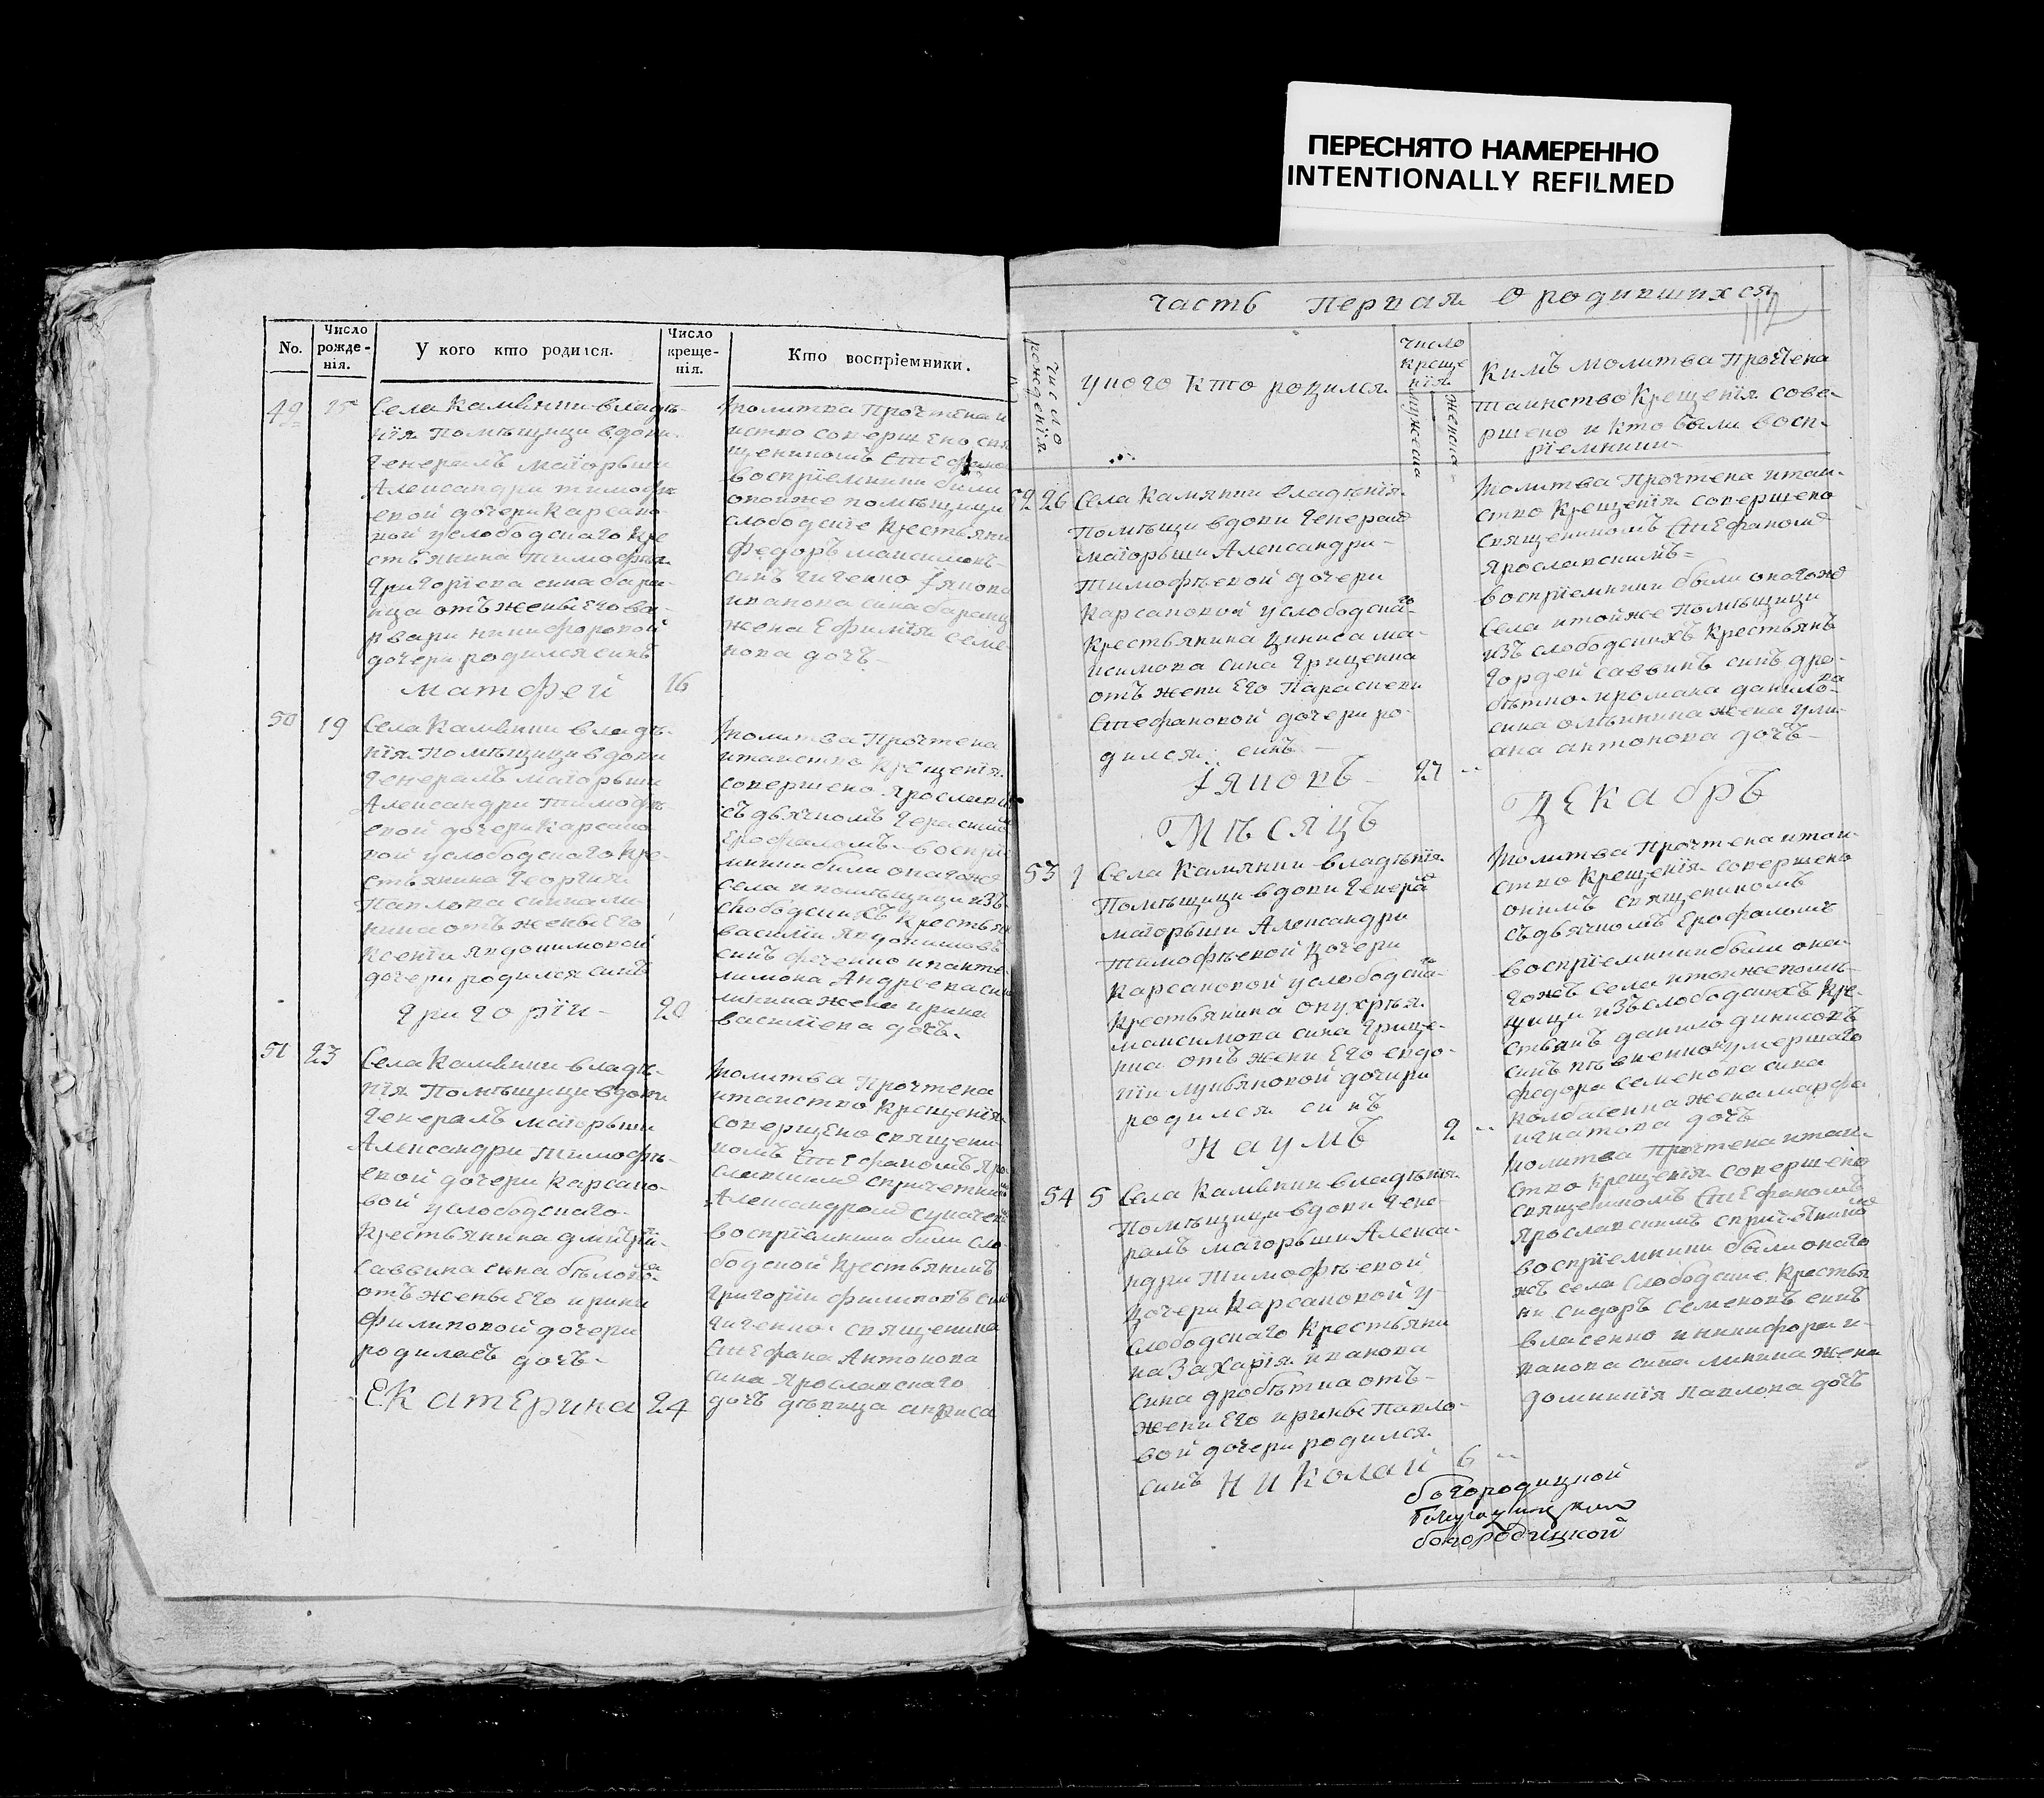 ПЕРЕСНЯТО НАМЕРЕННО
INTENTIONALLY REFILMED
No.
Число рожде-нія.
У кого кто родился.
Число креще-нія.
Кто воспріемники.
49 15
Села Камянки владѣ-
нія Помѣщици вдови
Генералъ маіорьши
Александри тимофѣ
евой дочери Карсано
вой услободскаго Кре
стьянина тимофея
Григоріева сина
отъ жены Его ва-
рвари никифоровой
дочери родился синъ
матфей 16
молитва Прочтена и
иство совершено свя
щеникомъ Стефано
воспріемники били
оной же помѣщици
слободские крестьяни
федоръ максимовъ
синъ Гиченко Іякова
иванова сина
жена Ефимія семе
нова дочъ
50 19
Села Камянки владѣ-
нія Помѣщици вдови
Генералъ маіорьши
Александри Тимофѣ
евой дочери Карсано
вой услободскаго Кре-
стьянина Георгия
Павлова сина
отъ жены Его
Ксеніи Явдокимовой
дочери родился синъ
григорій 20
молитва Прочтена
итаиство Крещенія
совершено Ярославск
съ дьячкомъ Герасимо
Ерофаломъ воспріе
мники били онагожъ
села ипомѣщици изъ
слободскихъ Крестьян
василій Явдокимовъ
синъ фененко ипанте
лимона Андреева син
жена ирина
василіева дочъ.
51 23
Села Камянки владѣ-
нія Помѣщици вдови
Генералъ маіорьши
Александри Тимофѣ-
евой дочери Карсано-
вой услободскаго
Крестьянина дмитрія
саввина сина
отъ жены Его ирини
филиповой дочери
родилась дочъ
Екатерина 24
молитва Прочтена
итаиство Крещенія
совершено священи
комъ Стефаномъ Яро
славскимъ спричетник
Александромъ
воспріемники били сло-
бодской Крестьянинъ
Григорій филиповъ син
Гиченко священика
Стефана Антонова
сина Ярославскаго
дочъ дѣвица анфиса
часть первая о родившихся
112
число рожденія
укого кто родился
число креще нія
мужеска
женска
Кимъ молитва Прочтена
таинство Крещенія сове-
ршено и кто были восп-
ріемники
52 26
Села Камянки владѣнія
Помѣщи вдови Генералъ
маіорьши Александри
Тимофѣевой дочери
Карсановой услободска-го
Крестьянина Диниса ма-
ксимова сина Гриценка
отъ жени Его Параскеви
Стефановой дочери ро-
дился синъ
Іяковъ 27
молитва Прочтена итаи-
ство Крещенія совершено
Священикомъ Стефаномъ
Ярославскимъ
воспріемники были онагожъ
Села итойже Помѣщици
изъ слободскихъ Крестьянъ
Гордей саввинъ синъ дро-
бытко ирамана данилова
сина жена ули-
ана антонова дочъ
Мѣсяцъ Декабръ
53 1
Села Камянки владѣнія
Помѣщици вдови Генера
маіорьши Александри
Тимофѣевой Дочери
Карсановой услободска-го
Крестьянина онухрѣя
максимова сина Грице-
нка отъ жени Его евдо-
кіи Лукьяновой дочири
родился синъ
Наумъ 2
Молитва Прочтена итаи-
ство Крещенія совершено
онимъ священикомъ
съ дьячкомъ Ерофаломъ
воспріемники были она-
гожъ села итойже помѣ-
щици изъ слободскихъ Кре-
стьянъ данило динисовъ
синъ умершаго
федора Семенова сина
жена марфа
игнатова дочъ
54 5
Села Камянки владѣнія
Помѣщици вдови Гене
ралъ магорьши Алекса-
ндри Тимофѣевой
Дочери Карсановой у-
слободскаго Крестьяни
на Захарія иванова
сина дробытка отъ-
жени Его иринье Павло-
вой дочери родился
синъ Николай 6
Молитва Прочтена итаи-
ство Крещенія совершено
священикомъ Стефаномъ
Ярославскимъ спричетникомъ
воспріемники были онаго
жъ села слободские Крестья
ни сидоръ Семеновъ синъ
власенко иникифора и-
ванова сина жена
домникія Павлова дочъ
богородицкой
богородицкой